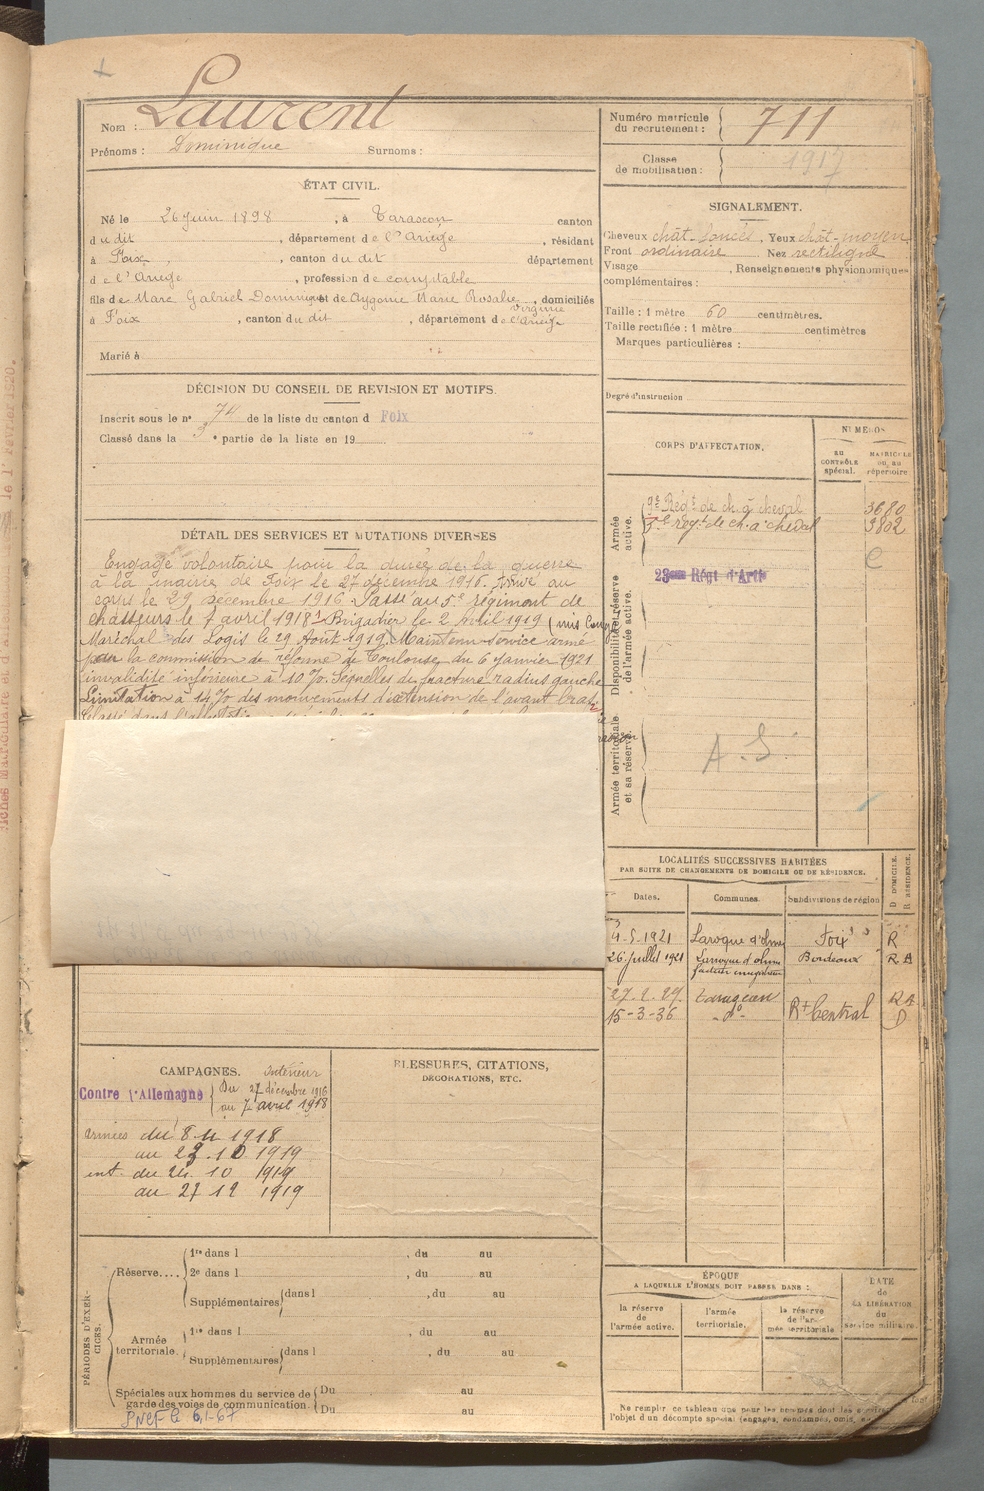 Laurent
Nom :
Prénoms : Dominique Surnoms :
Numéro matricule du recrutement : 711
Classe de mobilisation : 1917
ÉTAT CIVIL.
Né le 26 Juin 1898, à Tarascon canton
du dit, département de l'Ariège, résidant
à Foix, canton du dit département
de l'Ariège, profession de comptable
fils de Marc Gabriel Dominique et de Aygonie Marie Rosalie Virginie, domiciliés
à Foix, canton du dit, département de l'Ariège
Marié à
SIGNALEMENT.
Cheveux chât-foncés, Yeux chât-moyen
Front ordinaire Nez rectiligne
Visage, Renseignements physionomiques
complémentaires :
Taille : 1 mètre 60 centimètres.
Taille rectifiée : 1 mètre centimètres
Marques particulières :
Degré d'instruction
DÉCISION DU CONSEIL DE REVISION ET MOTIFS.
Inscrit sous le n° 74 de la liste du canton d Foix
Classé dans la 3e partie de la liste en 19
DÉTAIL DES SERVICES ET MUTATIONS DIVERSES
Engagé volontaire pour la durée de la guerre
à la mairie de Foix le 27 décembre 1916. Arrivé au
corps le 29 Décembre 1916. Passé au 5e régiment de
chasseurs le 7 avril 1918. Brigadier le 2 Avril 1919
Maréchal des Logis le 29 Août 1919. Maintenu service armé
par la commission de réforme de Toulouse du 6 Janvier 1921
invalidité inférieure à 10 %. Séquelles de fracture radius gauche
Limitation à 14 % des mouvements d'extension de l'avant bras
CORPS D'AFFECTATION.
NUMÉROS
au CONTRÔLE spécial.
MATRICULE ou au répertoire
Armée active.
9e Régt de ch. à cheval 3680
5e regt. de ch. à cheval 3802
Disponibilité et réserve de l'armée active.
23eme Régt d'Artie
C
Armée territoriale et sa réserve.
A. S.
LOCALITÉS SUCCESSIVES HABITÉES
PAR SUITE DE CHANGEMENTS DE DOMICILE OU DE RÉSIDENCE.
Dates. Communes. Subdivisions de région D DOMICILE. R RÉSIDENCE.
4-5-1921 Laroque d'olmes Foix R
26 Juillet 1921 Laroque d'olmes Bordeaux R
27.2.27. Tarascon
15-3-36 -do- Rt Central D
CAMPAGNES.
Intérieur
Contre l'Allemagne
Du 27 décembre 1916
au 7 avril 1918
armées du 8 4 1918
au 23.10 1919
int. du 24 10 1919
au 27 12 1919
BLESSURES, CITATIONS,
DÉCORATIONS, ETC.
PÉRIODES D'EXERCICES.
Réserve....
1re dans l, du au
2e dans l, du au
Supplémentaires dans l, du au
Armée territoriale.
1re dans l, du au
Supplémentaires dans l, du au
Spéciales aux hommes du service de garde des voies de communication.
Du au
Du au
ÉPOQUE
A LAQUELLE L'HOMME DOIT PASSER DANS :
la réserve de l'armée active.
l'armée territoriale.
la réserve de l'armée territoriale
DATE de LA LIBÉRATION du service militaire.
Ne remplir ce tableau que pour les hommes dont les
l'objet d'un décompte spécial (engagés, condamnés, omis,